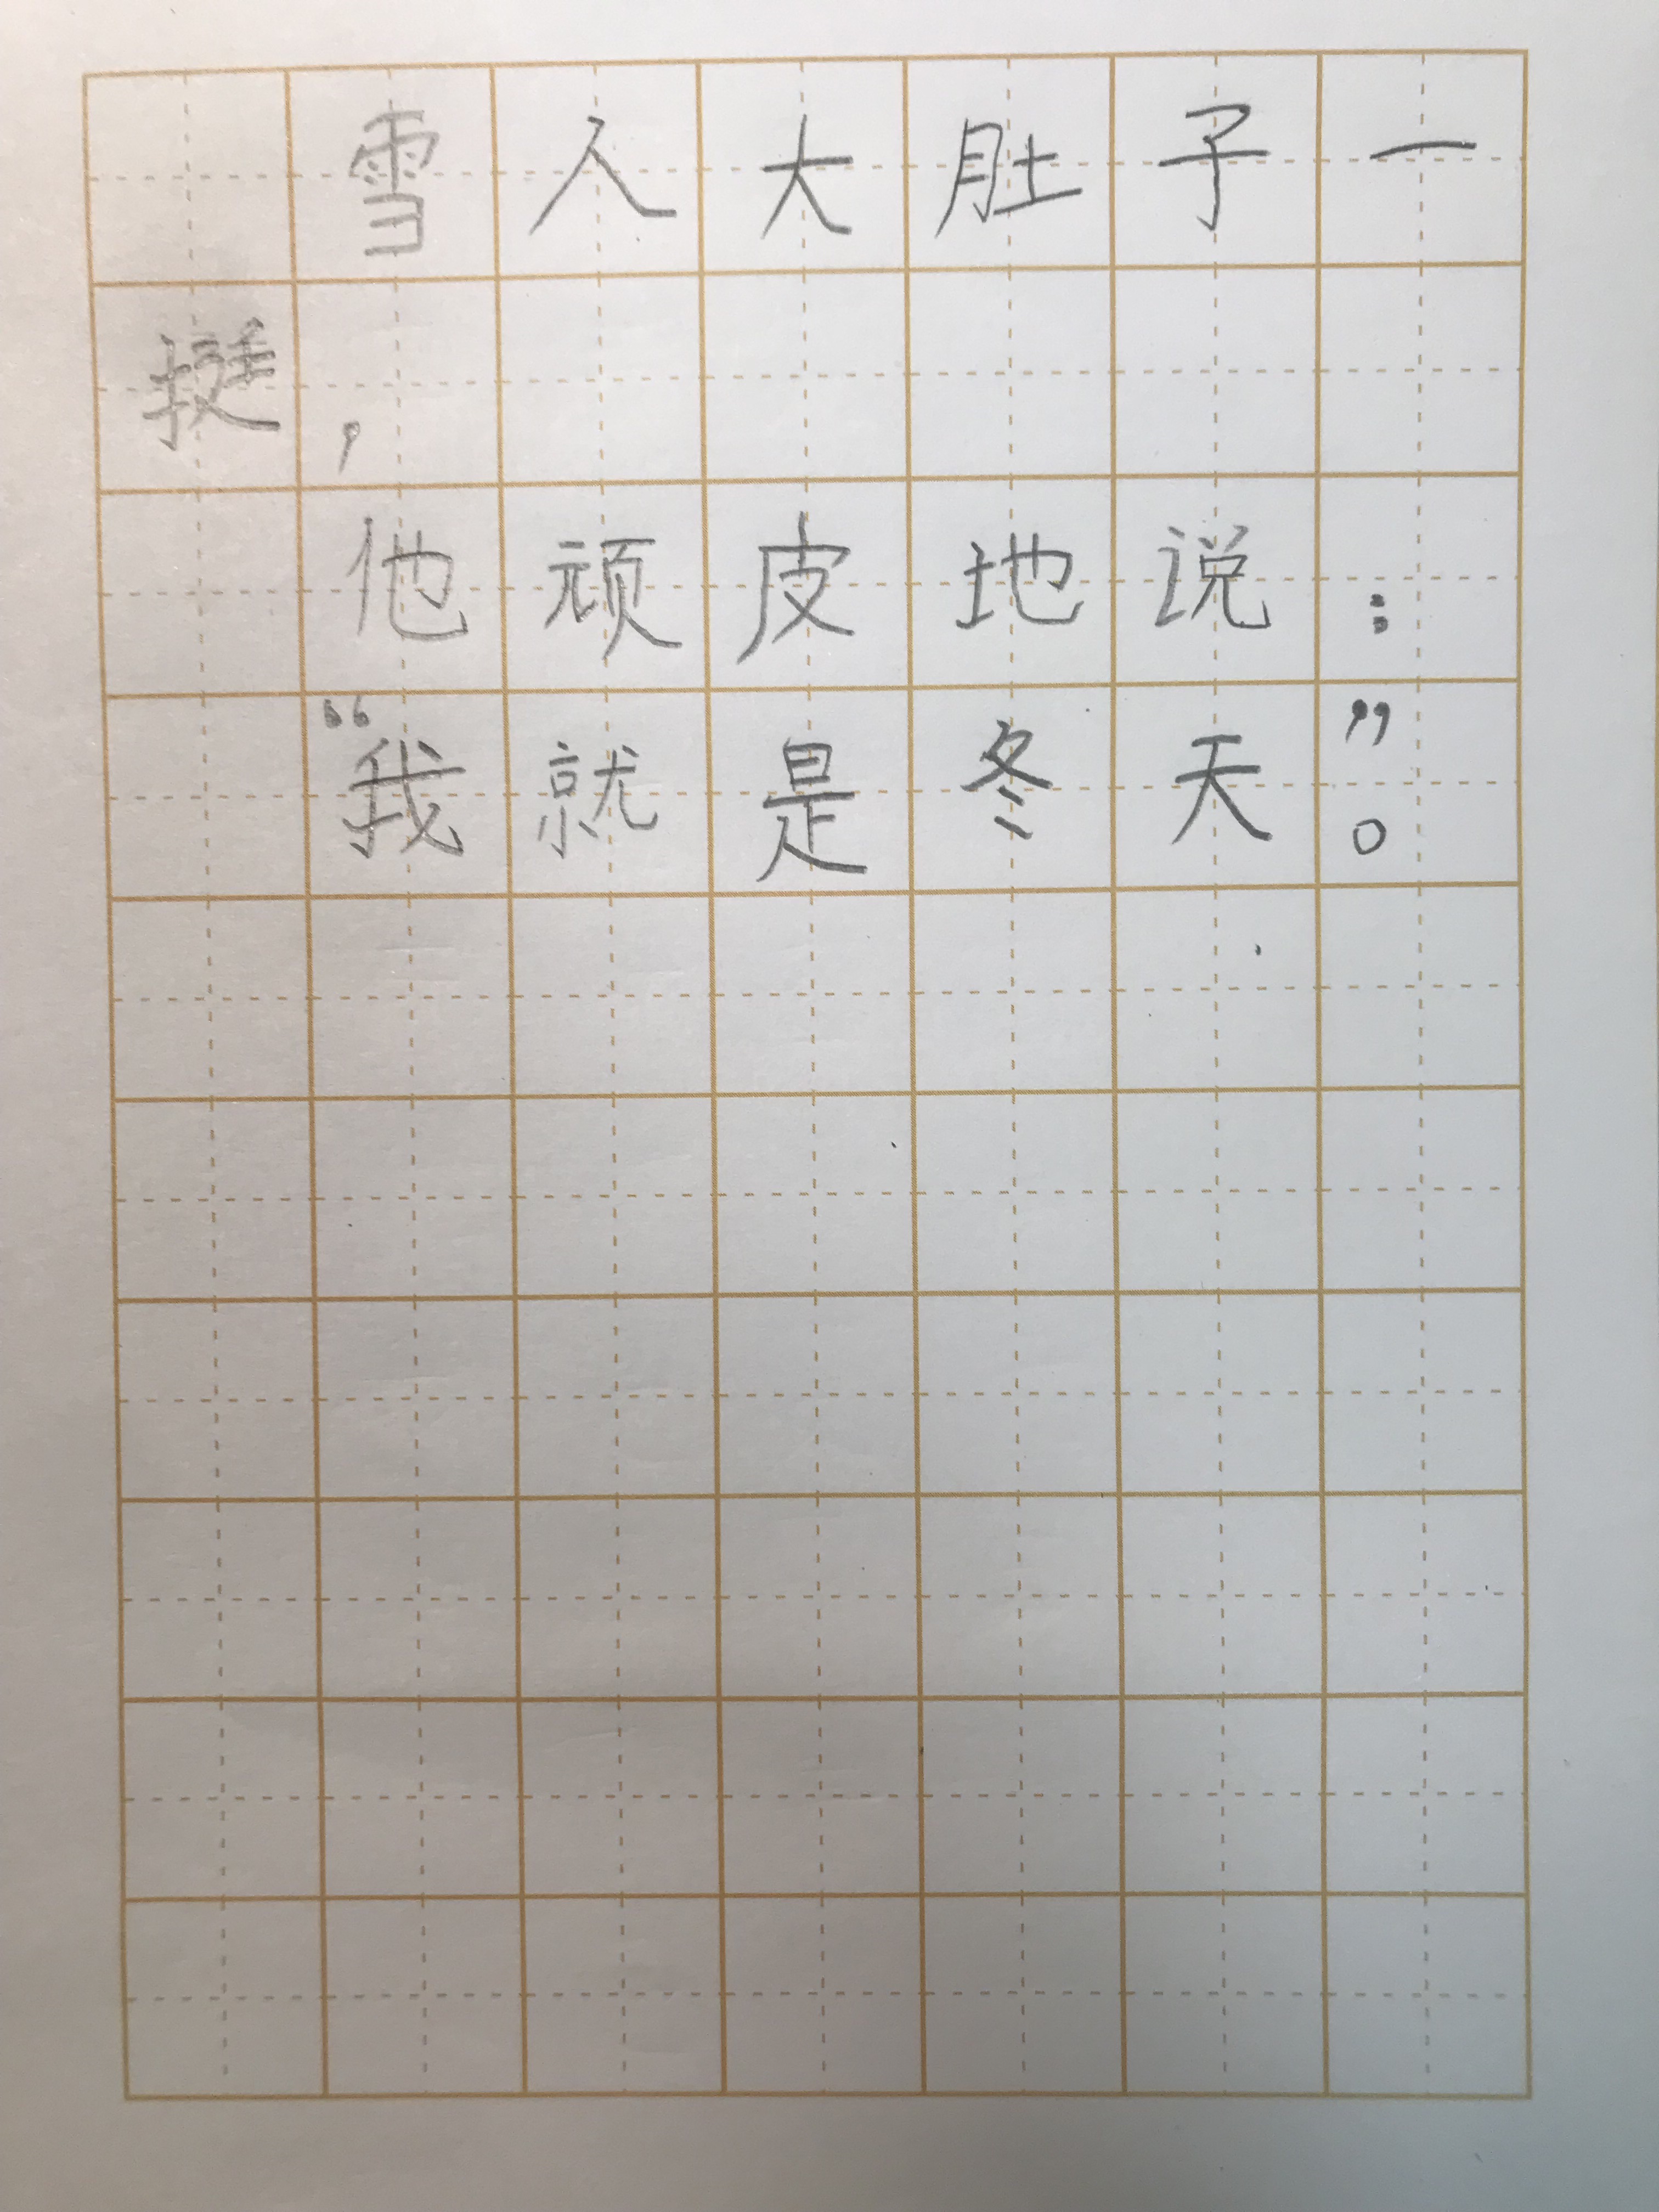 雪人大肚子一
挺，
他顽皮地说：
“我就是冬天”。